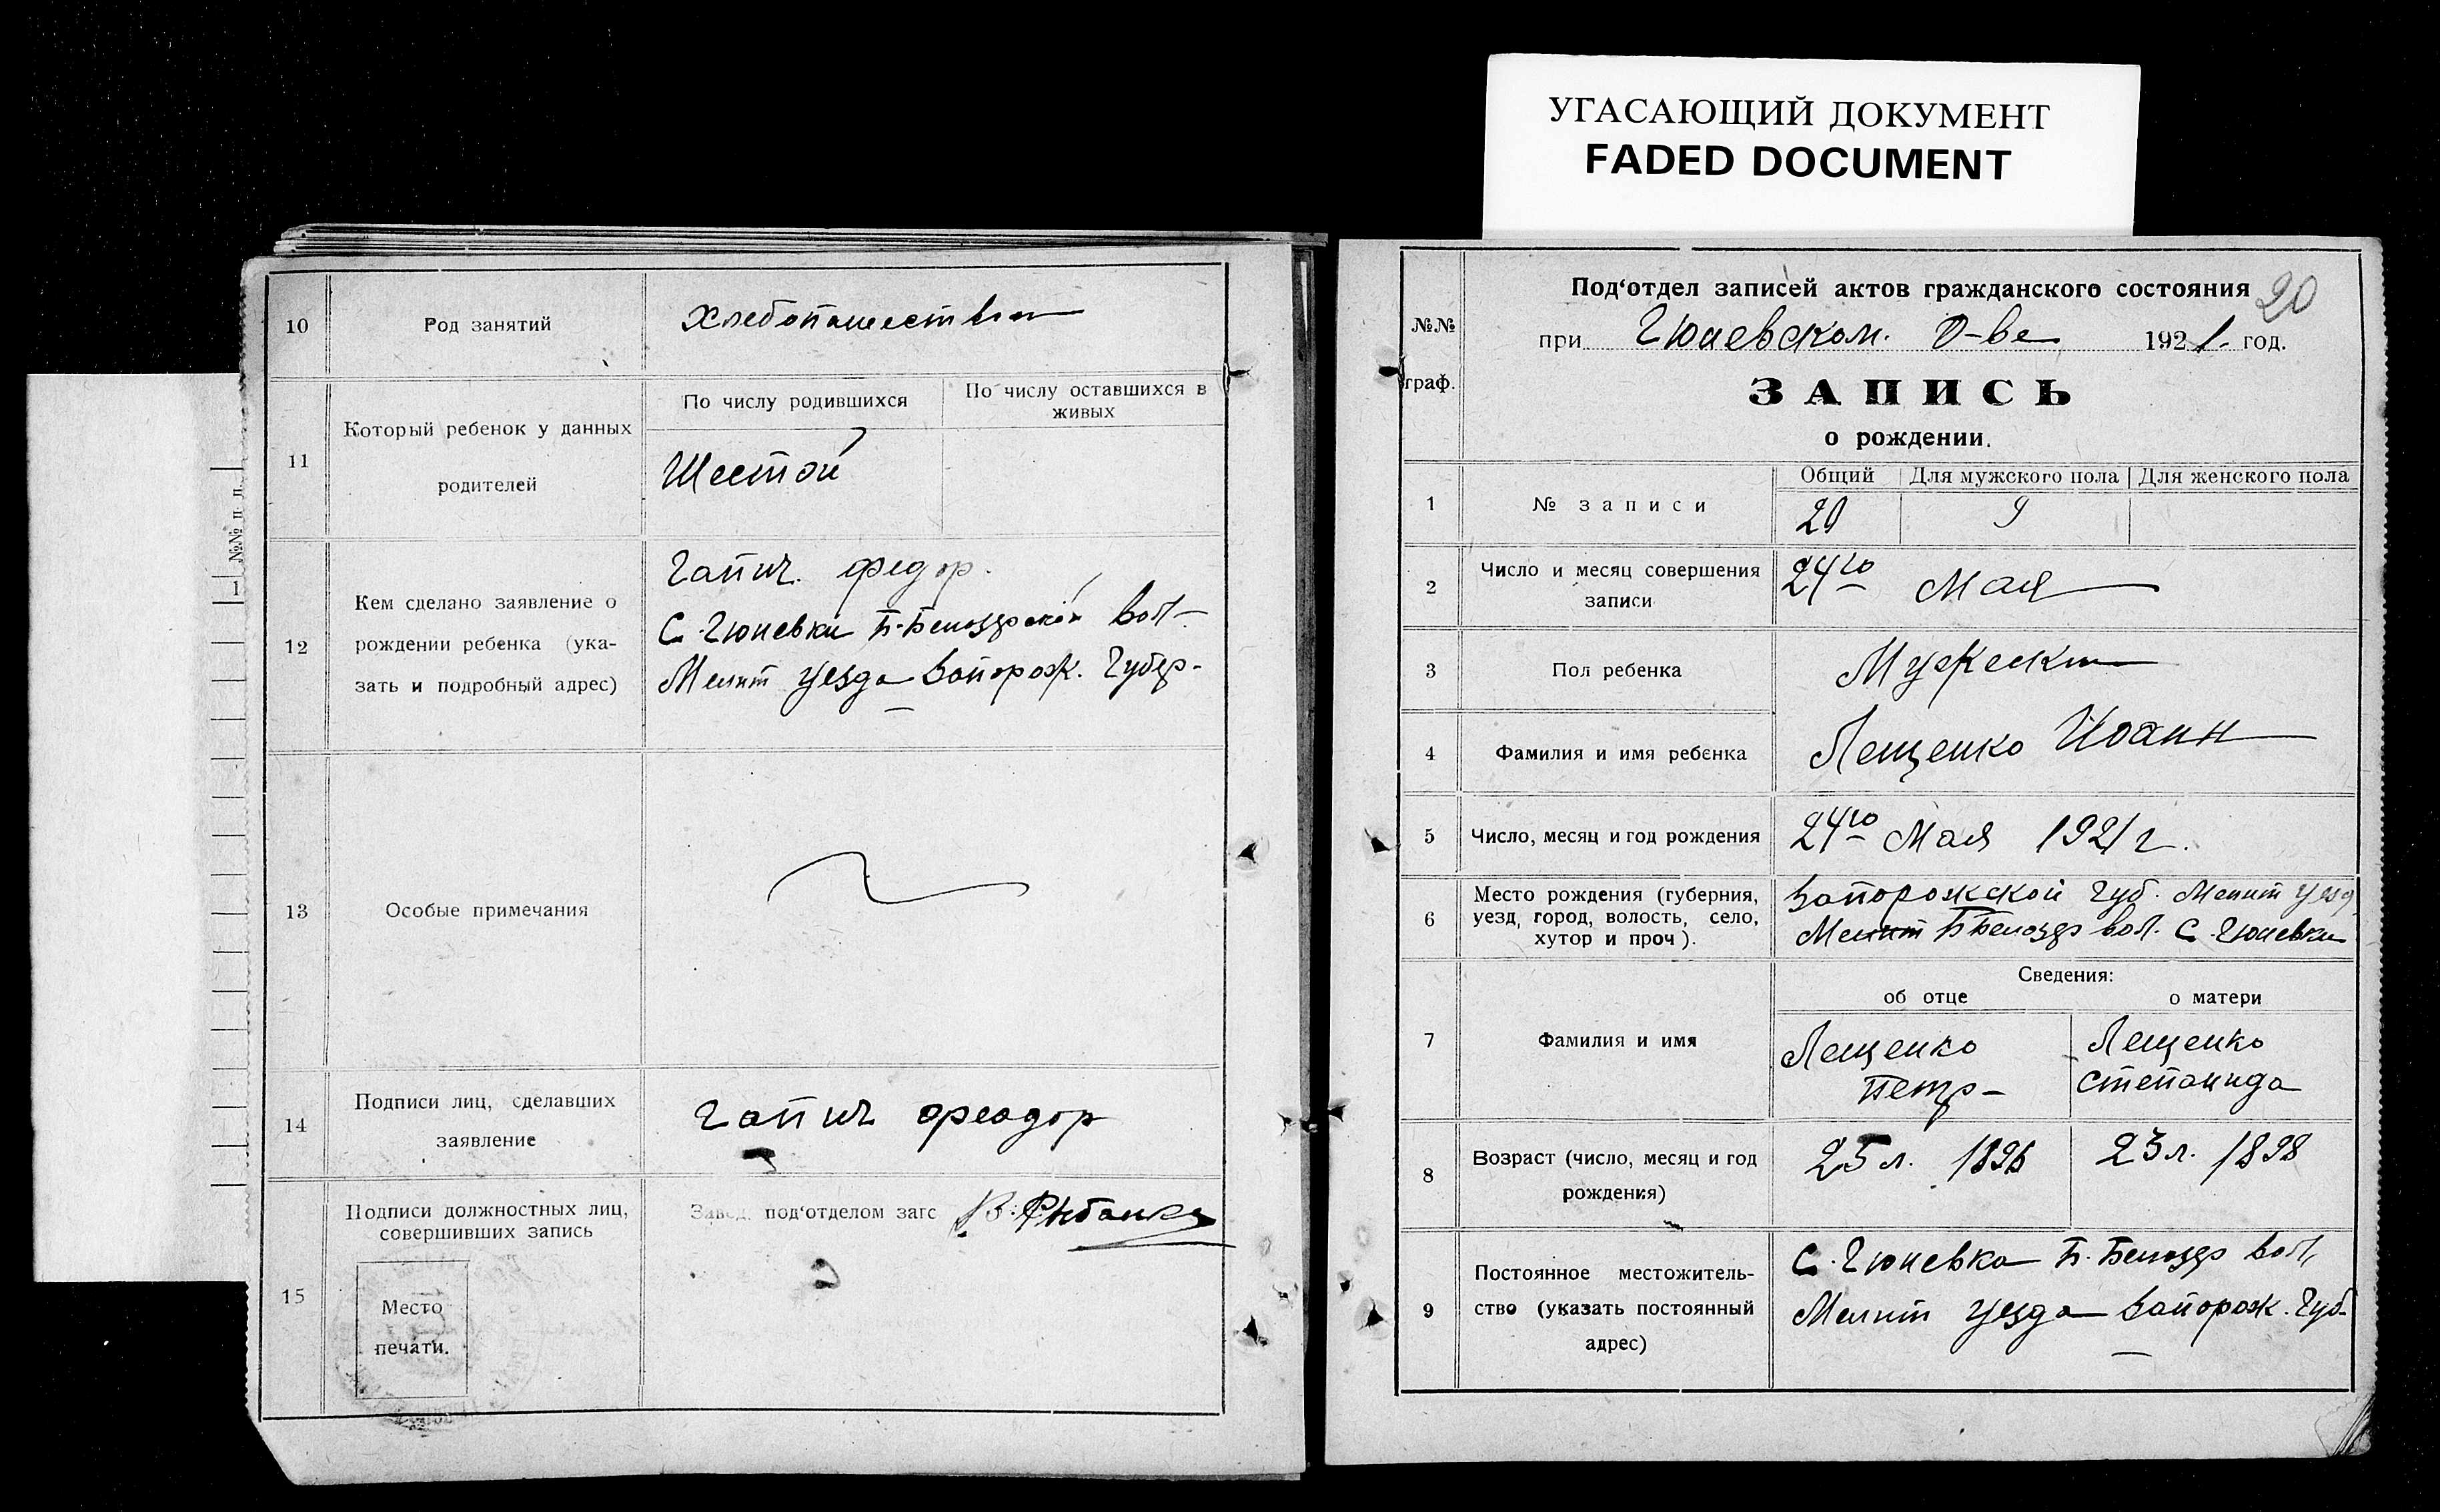 УГАСАЮЩИЙ ДОКУМЕНТ
FADED DOCUMENT
10
Род занятий
Хлебопашество
11
Который ребенок у данных
родителей
По числу родившихся
По числу оставшихся в
живых
Шестой
12
Кем сделано заявление о
рождении ребенка (ука-
зать и подробный адрес)
Гапич. Федор.
С. Гюневки Б-Белозерской вол.
Мелит уезда Запорож. Губер-
13
Особые примечания
14
Подписи лиц, сделавших
заявление
Гапич Феодор
15
Подписи должностных лиц,
совершивших запись
Завед. под'отделом загс
Место
печати.
№№ п. п.
1
№№
граф.
Под'отдел записей актов гражданского состояния
20
при Гюневском. О-ве 1921. год.
ЗАПИСЬ
о рождении.
1
№ записи
Общий
Для мужского пола
Для женского пола
20
9
2
Число и месяц совершения
записи
24го Мая
3
Пол ребенка
Мужески
4
Фамилия и имя ребенка
Лещенко Иоанн
5
Число, месяц и год рождения
24го Мая 1921 г.
6
Место рождения (губерния,
уезд, город, волость, село,
хутор и проч).
Запорожской Губ. Мелит уезд
Мелит Б Белозер вол. С. Гюневки
Сведения:
об отце
о матери
7
Фамилия и имя
Лещенко
Петр-
Лещенко
Степанида
8
Возраст (число, месяц и год
рождения)
25 л. 1896
23 л. 1898
9
Постоянное местожитель-
ство (указать постоянный
адрес)
С. Гюневка Б. Белозер вол,
Мелит уезда Запорож. Губ.